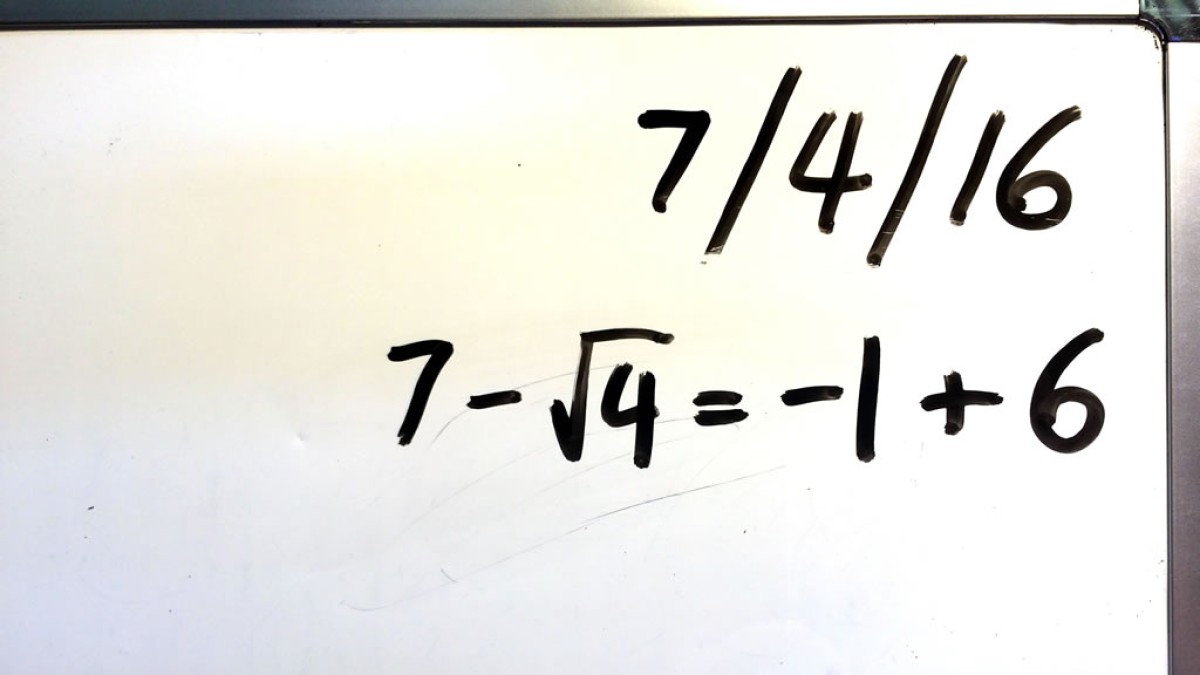 7/4/16
7-√4=-1+6